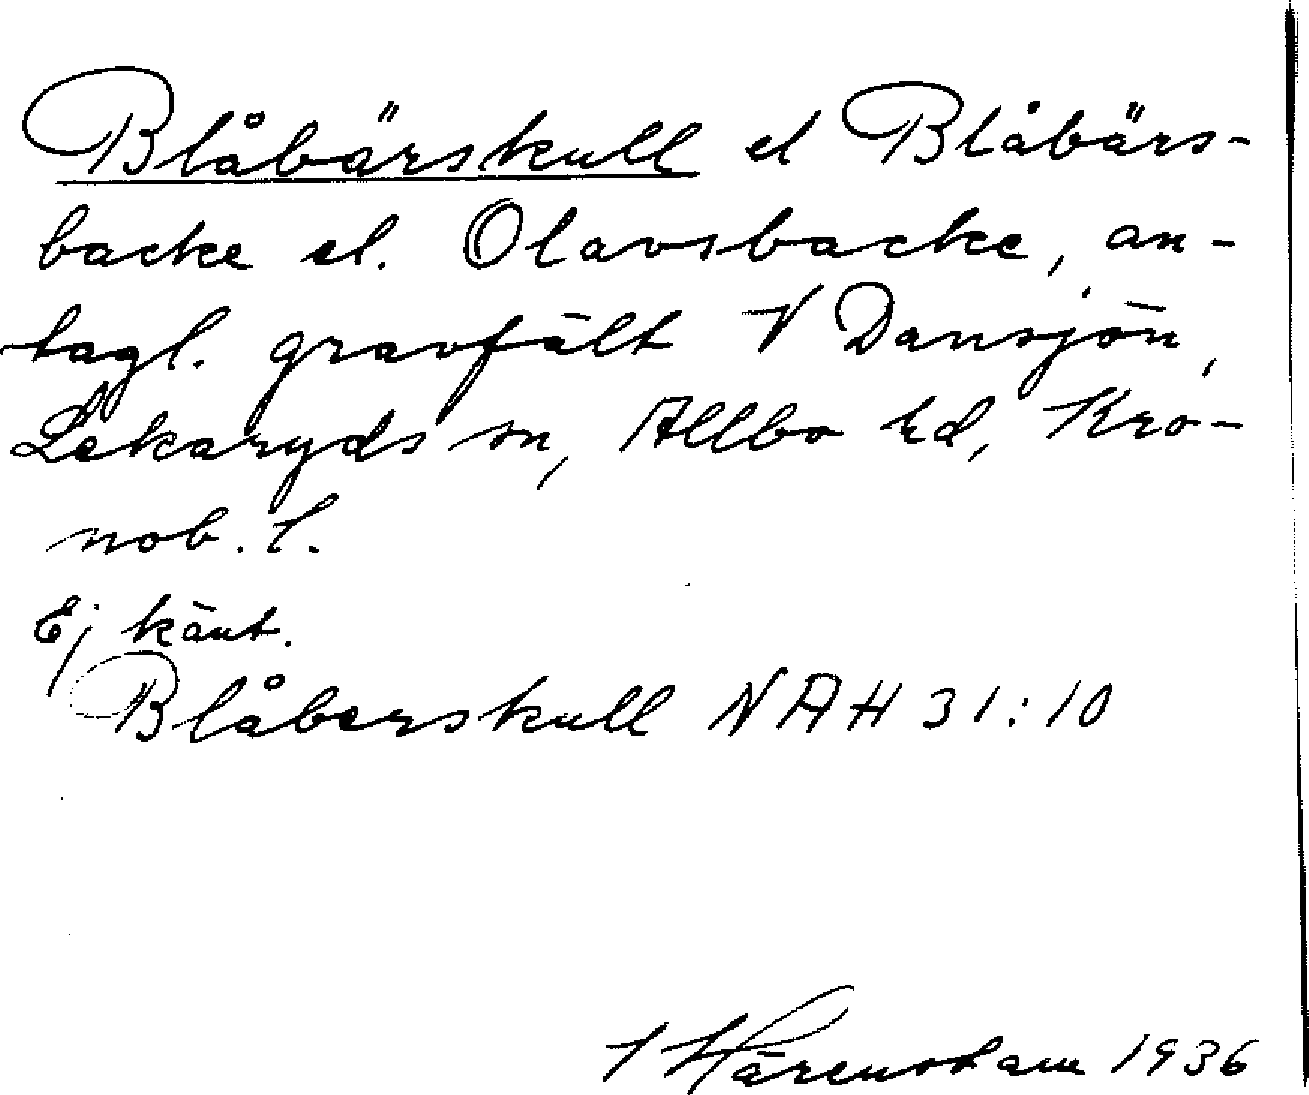 Blåbärskull el Blåbärs-
backe el. Olavsbacke, an-
tagl. gravfält V Dansjön,
Lekaryds sn, Allbo hd, Kro-
nob. l.
Ej känt.
Blåberskull NAH 31:10
1936